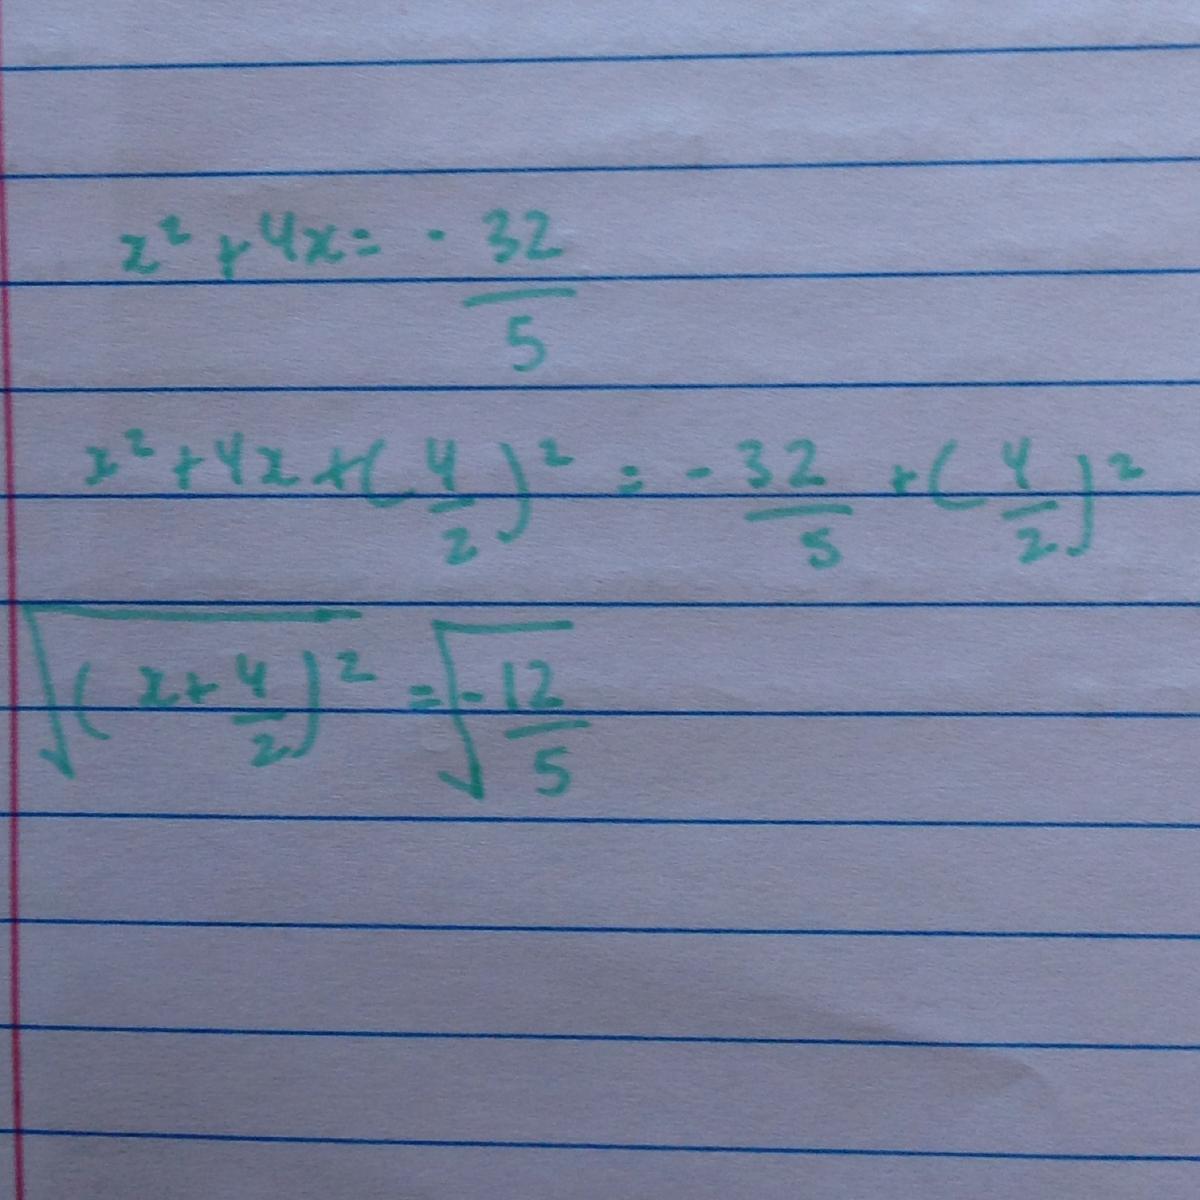 x² + 4x = - 32/5
x² + 4x + (4/2)² = - 32/5 + (4/2)²
√(x + 4/2)² = √-12/5